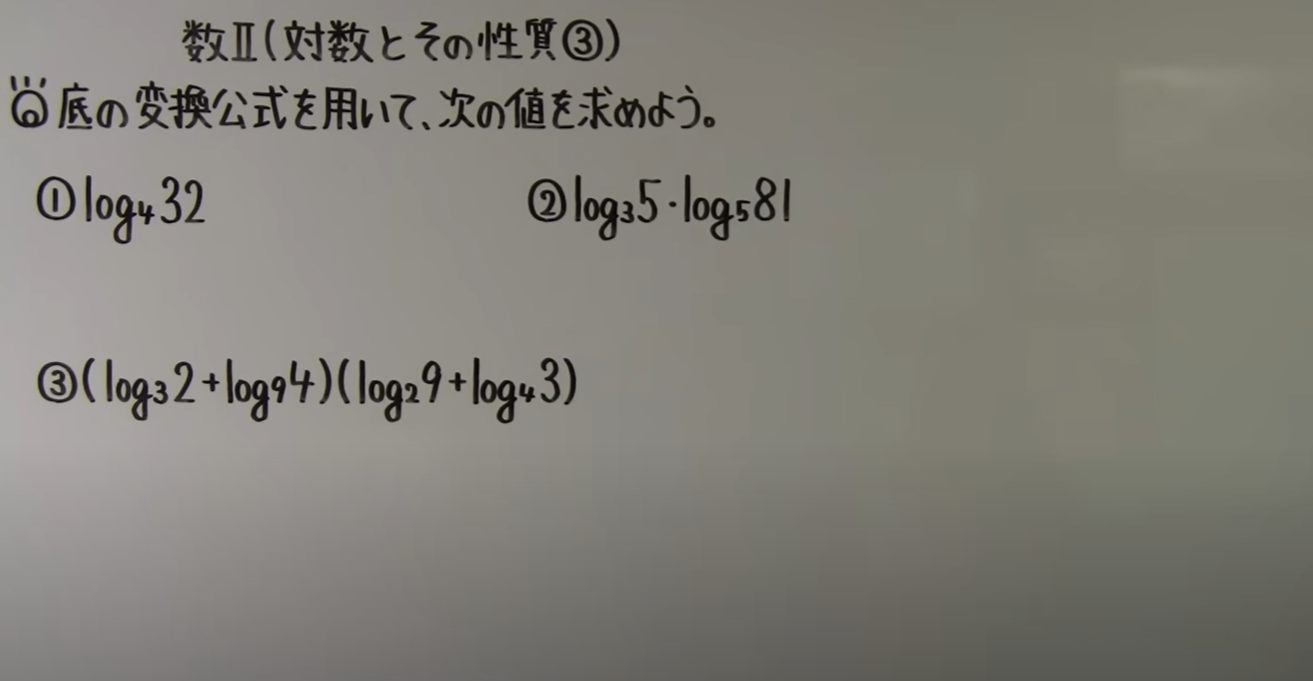 数Ⅱ(対数とその性質③)
底の変換公式を用いて、次の値を求めよう。
①log₄32 ②log₃5・log₅81
③(log₃2+log₉4)(log₂9+log₄3)